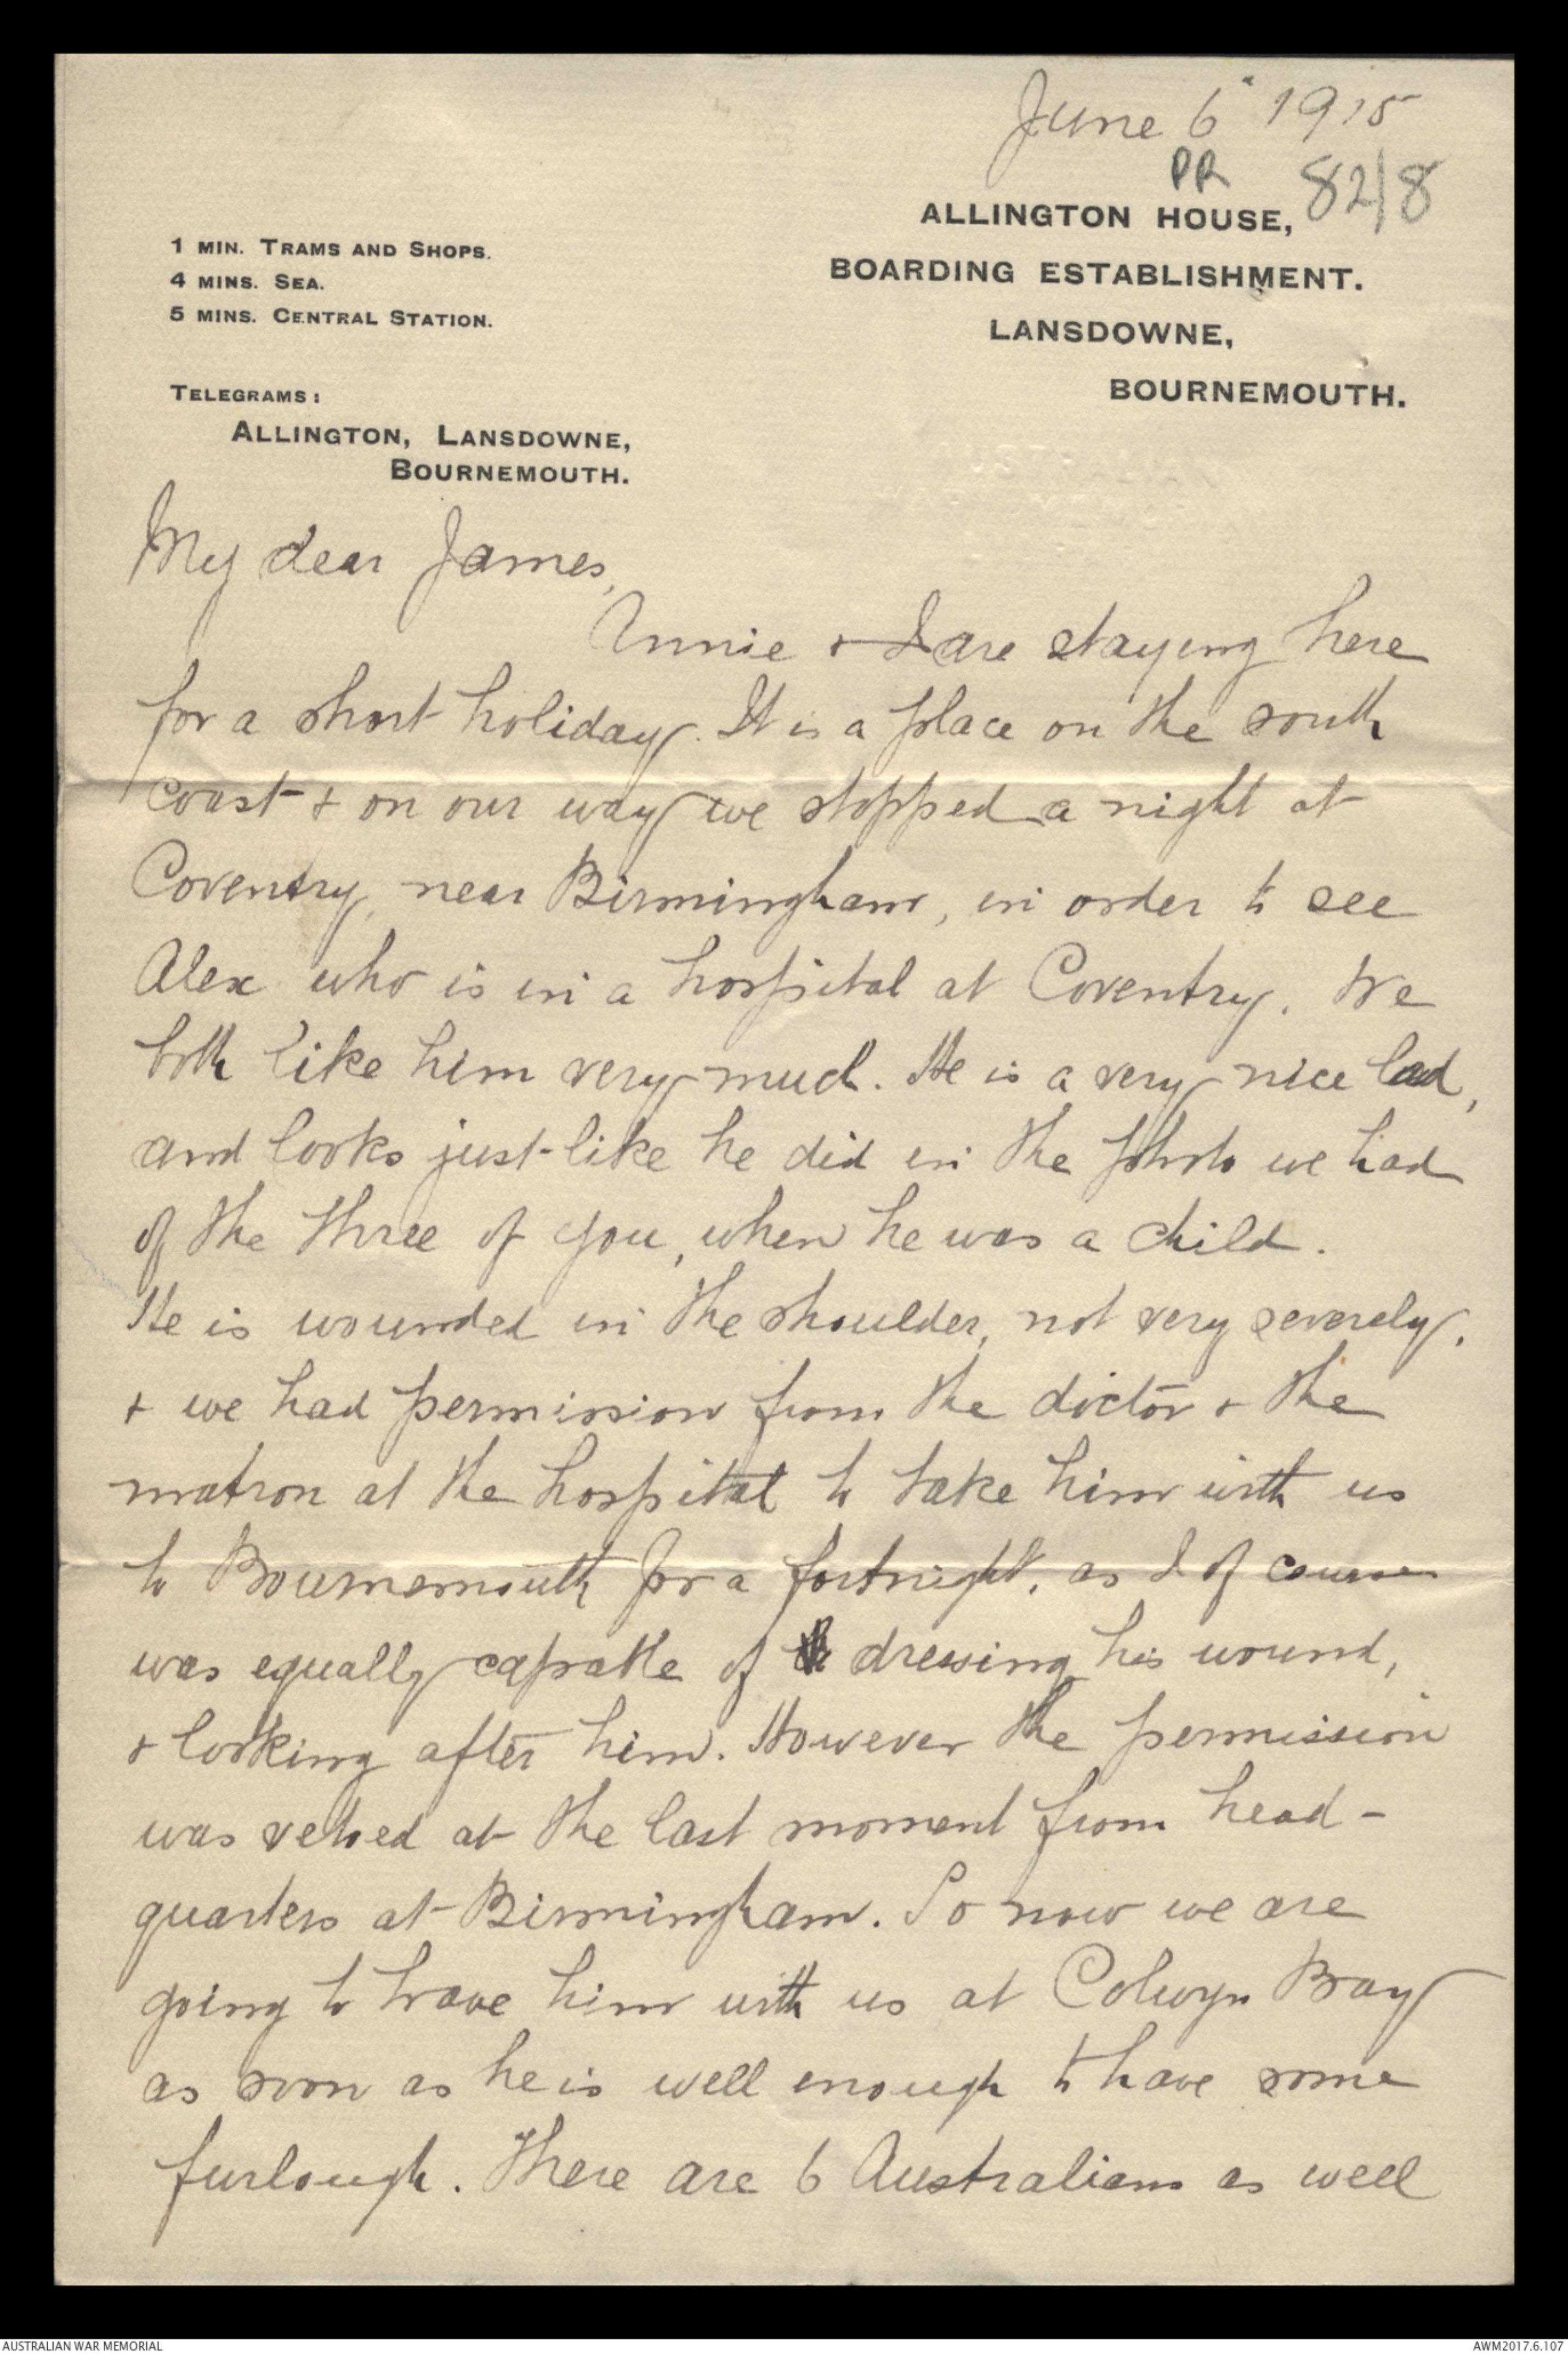 June 6" 1915
PR 82/8
ALLINGTON HOUSE,
BOARDING ESTABLISHMENT.
LANSDOWNE,
BOURNEMOUTH.
1 MIN. TRAMS AND SHOPS.
4 MINS. SEA.
5 MINS. CENTRAL STATION.
TELEGRAMS:
ALLINGTON, LANSDOWNE,
BOURNEMOUTH.
My dear James,
Annie + I are staying here
for a short holiday. It is a place on the south
coast + on our way we stopped a night at
Coventry, near Birmingham, in order to see
Alex who is in a hospital at Coventry. We
both like him very much. He is a very nice lad,
and looks just like he did in the photo we had
of the three of you, when he was a child.
He is wounded in the shoulder, not very severely,
+ we had permission from the doctor + the
matron at the hospital to take him with us
to Bournemouth for a fortnight, as I of course
was equally capable of dressing his wound,
+ looking after him. However the permission
was vetoed at the last moment from head-
quarters at Birmingham. So now we are
going to have him with us at Colwyn Bay
as soon as he is well enough to have some
furlough. There are 6 Australians as well
AUSTRALIAN WAR MEMORIAL
AWM2017.6.107